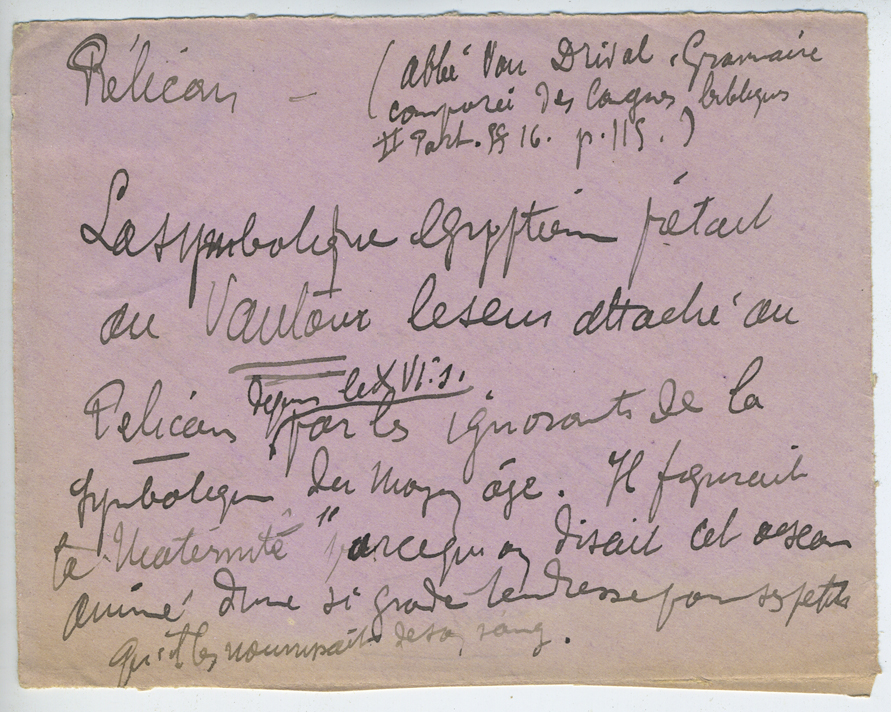 Pélican – (abbé Van Drival. Grammaire
comparée des langues bibliques
II Part. §§ 16. p. 115.)
La symbolique Egyptien
au Vautour le sens attaché au
depuis le XVI. s.
Pelican par les ignorants de la
symbolique du Moyen âge. Il figurait
la "Maternité" parcequ'on disait cet oiseau
animé d'une si grande tendresse pour ses petits
qu'il les nourrissait de son sang.